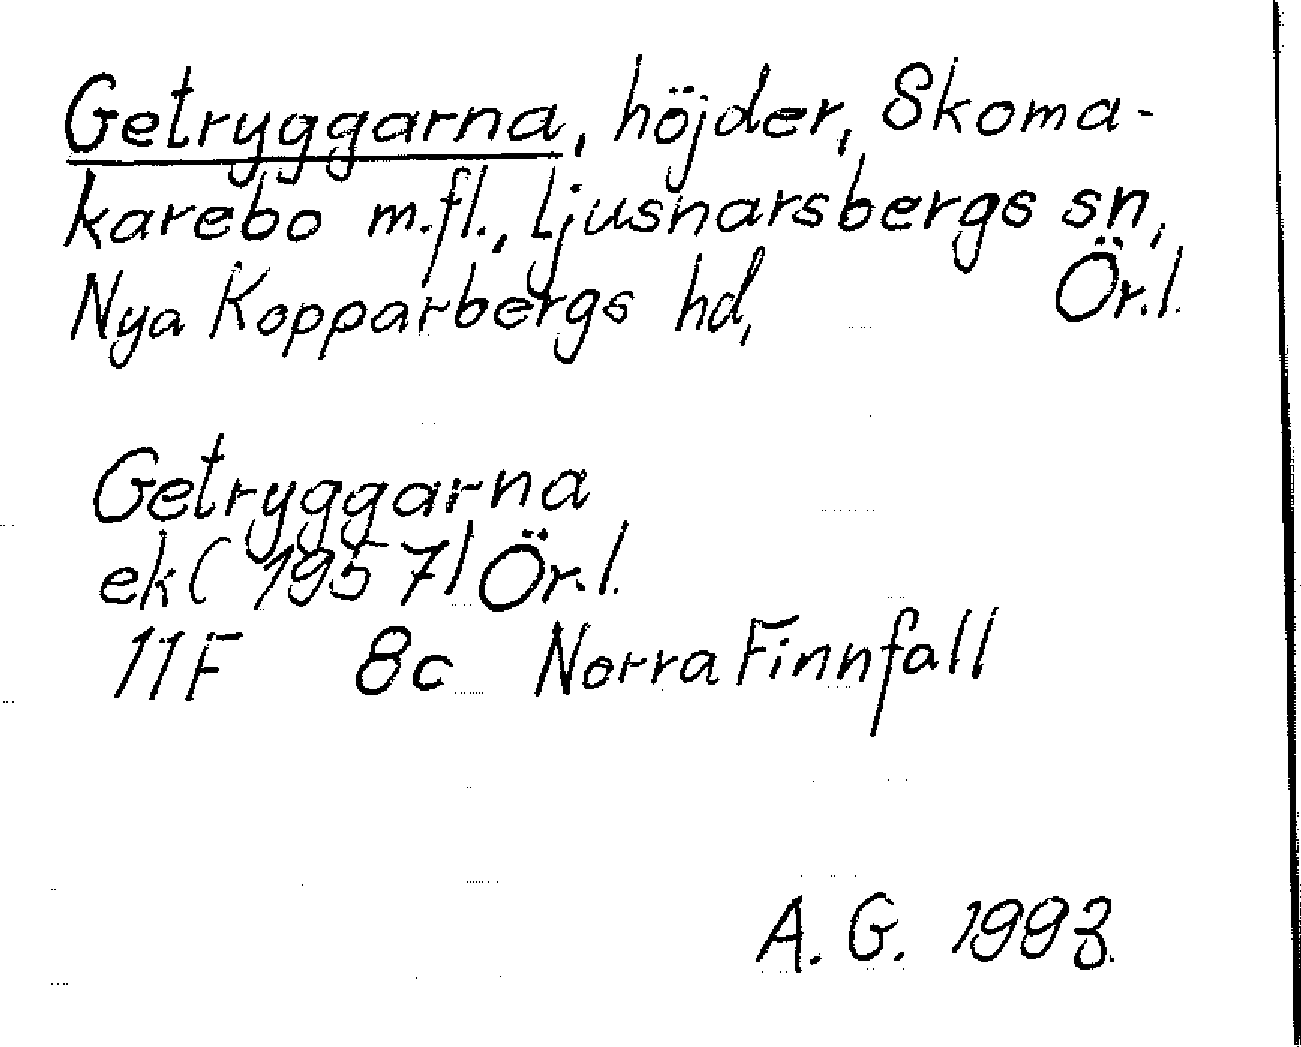 Getryggarna, höjder, Skoma-
karebo m.fl., Ljusnarsbergs sn,
Nya Kopparbergs hd, Ör.l.
Getryggarna
ek (1957) Ör.l.
11F 8c Norra Finnfall
A. G. 1993.